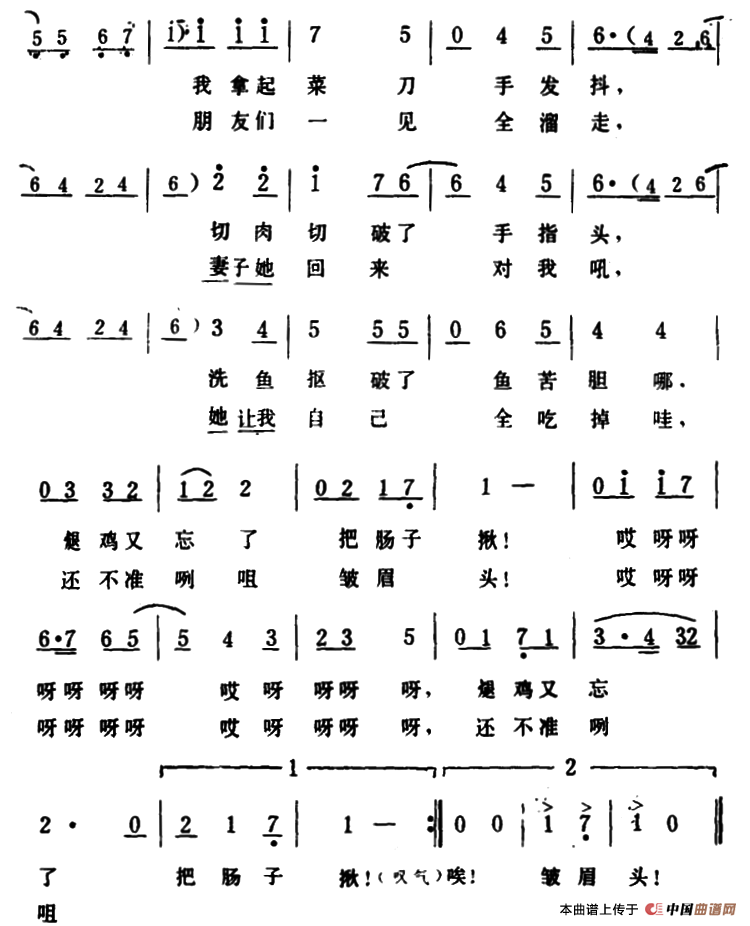 5 5 6 7 | i· i i i | 7 5 | 0 4 5 | 6·(4 2 6 |
我拿起菜刀 手发抖,
朋友们一见 全溜走,
6 4 2 4 | 6) 2 2 | i 7 6 | 6 4 5 | 6·(4 2 6 |
切肉切破了 手指头,
妻子她回来 对我吼,
6 4 2 4 | 6) 3 4 | 5 5 5 | 0 6 5 | 4 4 |
洗鱼抠破了 鱼苦胆哪,
她让我自己 全吃掉哇,
0 3 3 2 | 1 2 2 | 0 2 1 7 | 1 — | 0 i i 7 |
煺鸡又忘了 把肠子揪! 哎呀呀
还不准咧咀 皱眉头! 哎呀呀
6·7 6 5 | 5 4 3 | 2 3 5 | 0 1 7 1 | 3·4 3 2 |
呀呀呀呀 哎呀呀呀呀, 煺鸡又忘
呀呀呀呀 哎呀呀呀呀, 还不准咧
1 2
2· 0 | 2 1 7 | 1 — :‖ 0 0 | 1 7 | 1 0 ‖
了 把肠子揪!(叹气)唉! 皱眉头!
咀
本曲谱上传于 中国曲谱网